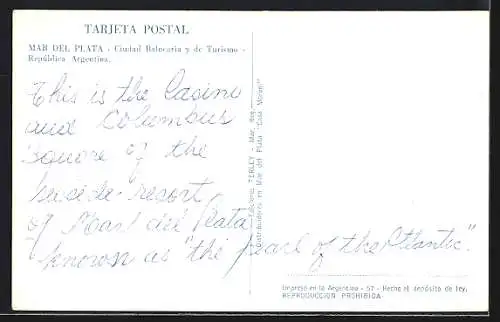 TARJETA POSTAL
MAR DEL PLATA - Ciudad Balnearia y de Turismo -
República Argentina.
This is the Casino
and Columbus
Square of the
seaside resort
of Mar del Plata
known as "the pearl of the Atlantic".
Ediciones TERLEY - Mar,
Distribuidores en Mar del Plata "Casa Morano"
Impreso en la Argentina - 57 - Hecho el depósito de ley.
REPRODUCCION PROHIBIDA